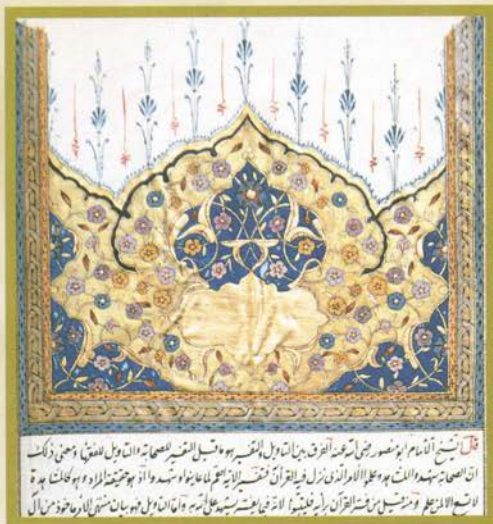 قال الشيخ الامام ابو منصور رضي الله عنه الفرق بين التاويل والتفسير هو ما قيل التفسير للصحابة والتاويل للفقهاء ومعنى ذلك
ان الصحابة شهدوا وعلموا الامر الذى نزل فيه القرآن فتفسير الاية اهم لما عاينوا وشهدوا اذ هو حقيقة المراد وهو كالمشاهدة
لا الا لمن علم ومنه قيل من فسر القرآن برأيه فليتبوأ لانه فيما يفسر يشهد على الله به واما التاويل فهو بيان منتهى الامر مأخوذ من آل